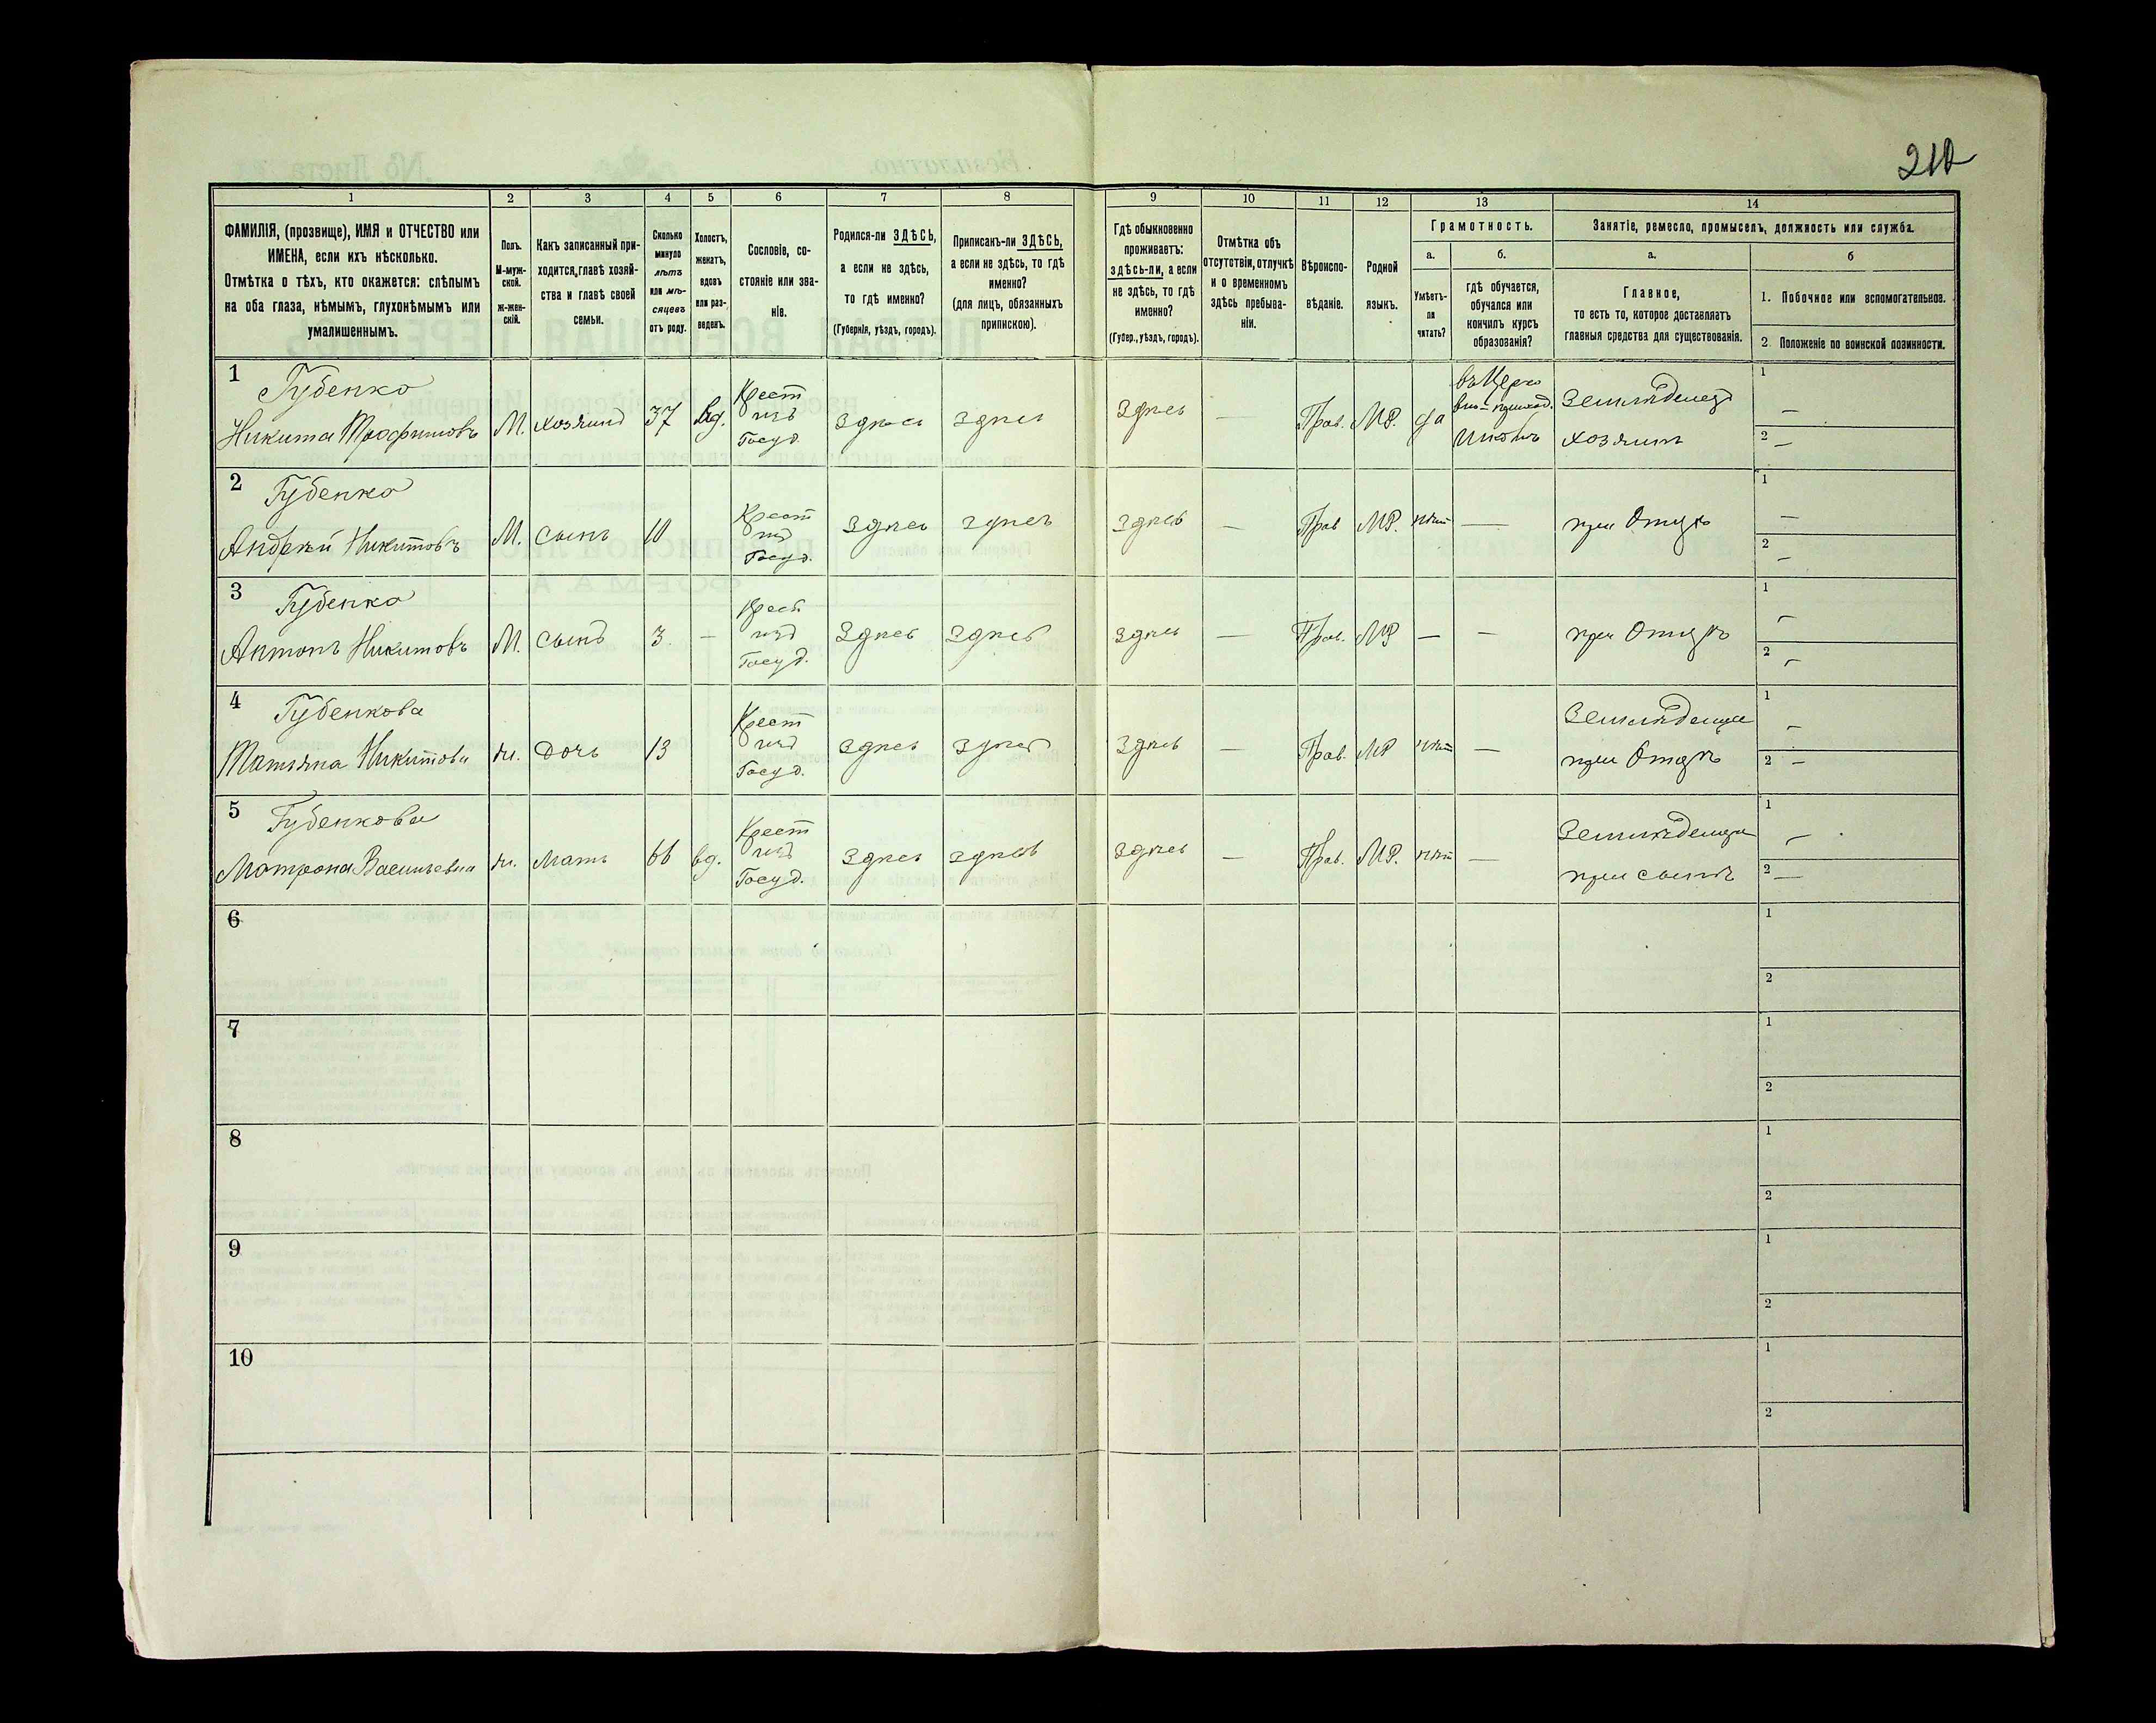 212
1 2 3 4 5 6 7 8 9 10 11 12 13 14
ФАМИЛІЯ, (прозвище), ИМЯ и ОТЧЕСТВО или
ИМЕНА, если ихъ нѣсколько.
Отмѣтка о тѣхъ, кто окажется: слѣпымъ
на оба глаза, нѣмымъ, глухонѣмымъ или
умалишеннымъ.
Полъ.
М-муж-
ской.
ж-жен-
скій.
Какъ записанный при-
ходится, главѣ хозяй-
ства и главѣ своей
семьи.
Сколько
минуло
лѣтъ
или мѣ-
сяцевъ
отъ роду.
Холостъ,
женатъ,
вдовъ
или раз-
веденъ.
Сословіе, со-
стояніе или зва-
ніе.
Родился-ли ЗДѢСЬ,
а если не здѣсь,
то гдѣ именно?
(Губернія, уѣздъ, городъ).
Приписанъ-ли ЗДѢСЬ,
а если не здѣсь, то гдѣ
именно?
(для лицъ, обязанныхъ
припискою).
Гдѣ обыкновенно
проживаетъ:
здѣсь-ли, а если
не здѣсь, то гдѣ
именно?
(Губер., уѣздъ, городъ).
Отмѣтка объ
отсутствіи, отлучкѣ
и о временномъ
здѣсь пребыва-
ніи.
Вѣроиспо-
вѣданіе.
Родной
языкъ.
Грамотность.
а.
Умѣетъ-
ли
читать?
б.
гдѣ обучается,
обучался или
кончилъ курсъ
образованія?
Занятіе, ремесло, промыселъ, должность или служба.
а.
Главное,
то есть то, которое доставляетъ
главныя средства для существованія.
б
1. Побочное или вспомогательное.
2. Положеніе по воинской повинности.
1 Губенко
Никита Трофимовъ М. хозяинъ 37 вд. Крест изъ Госуд. Здѣсь Здѣсь Здѣсь — Прав. МР. да въ Церко вно-приход. школѣ Земледѣлецъ хозяинъ 1 — 2 —
2 Губенко
Андрѣй Никитовъ М. сынъ 10 Крест изъ Госуд. Здѣсь Здѣсь Здѣсь — Прав МР. нѣт — при Отцѣ 1 — 2 —
3 Губенко
Антонъ Никитовъ М. сынъ 3 — Крест изъ Госуд. Здѣсь Здѣсь Здѣсь — Прав. МР — — при Отцѣ 1 — 2 —
4 Губенкова
Татьяна Никитова ж. Дочь 13 Крест изъ Госуд. Здѣсь Здѣсь Здѣсь — Прав. МР нѣт — Земледѣлица при Отцѣ 1 — 2 —
5 Губенкова
Матрона Васильевна ж. Мать 66 вд. Крест изъ Госуд. Здѣсь Здѣсь Здѣсь — Прав. МР. нѣт — Земледѣлица при сынѣ 1 — 2 —
6 1 2
7 1 2
8 1 2
9 1 2
10 1 2